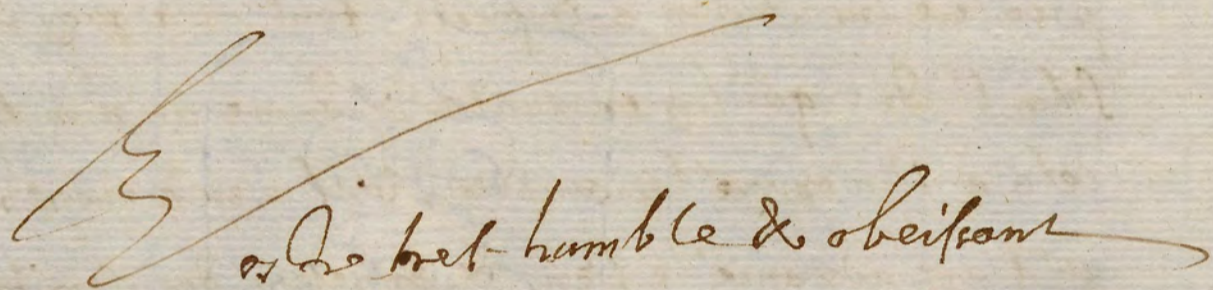 Vostre tres humble & obeissant